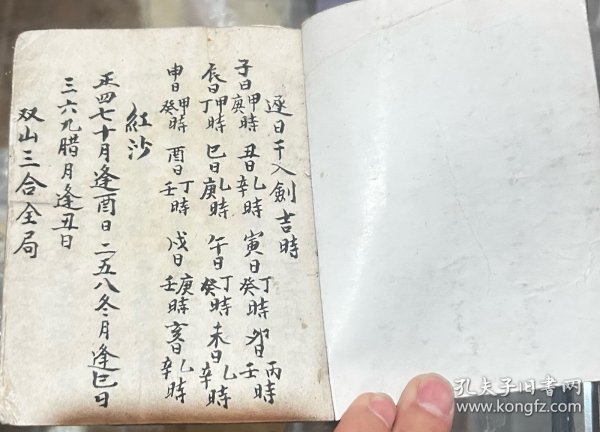 逐日干入劍吉時
子日甲庚時 丑日乙辛時 寅日丁癸時 卯日丙壬時
辰日甲丁時 巳日乙庚時 午日丁癸時 未日乙辛時
申日甲癸時 酉日丁壬時 戌日庚壬時 亥日乙辛時
紅沙
正四七十月逢酉日 二五八冬月逢巳日
三六九腊月逢丑日
双山三合全局
孔夫子旧书网
www.kongfz.com